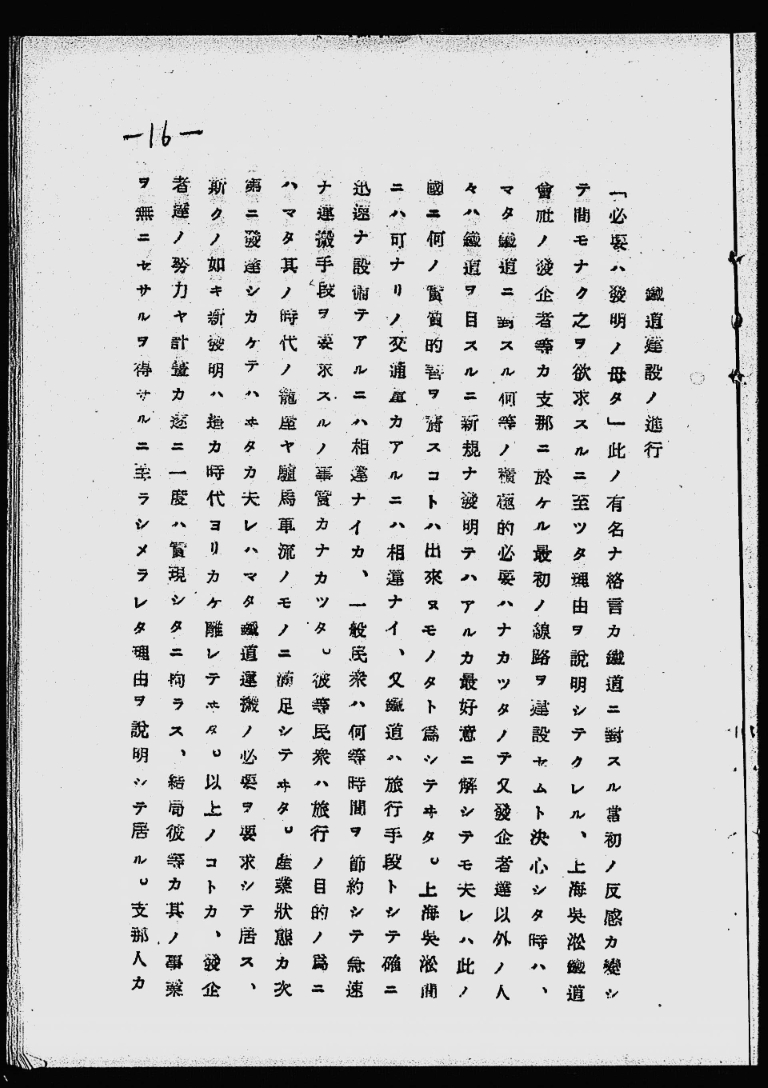 —16—
鐵道建設ノ進行
「必要ハ發明ノ母タ」此ノ有名ナ格言カ鐵道ニ對スル當初ノ反感カ變シ
テ間モナク之ヲ欲求スルニ至ツタ理由ヲ說明シテクレル、上海吳淞鐵道
會社ノ發企者等カ支那ニ於ケル最初ノ線路ヲ建設セムト決心シタ時ハ、
マタ鐵道ニ對スル何等ノ積極的必要ハナカツタノテ又發企者達以外ノ人
々ハ鐵道ヲ目スルニ新規ナ發明テハアルカ最好意ニ解シテモ夫レハ此ノ
國ニ何ノ實質的善ヲ齎スコトハ出來ヌモノタト爲シテヰタ。上海吳淞間
ニハ可ナリノ交通量カアルニハ相違ナイ、又鐵道ハ旅行手段トシテ確ニ
迅速ナ設備テアルニハ相違ナイカ、一般民衆ハ何等時間ヲ節約シテ急速
ナ運搬手段ヲ要求スルノ事實カナカツタ。彼等民衆ハ旅行ノ目的ノ爲ニ
ハマタ其ノ時代ノ籠屋ヤ驢馬車流ノモノニ滿足シテヰタ。產業狀態カ次
第ニ發達シカケテハヰタカ夫レハマタ鐵道運搬ノ必要ヲ要求シテ居ス、
斯クノ如キ新發明ハ遙カ時代ヨリカケ離レテヰタ。以上ノコトカ、發企
者達ノ努力ヤ計畫カ遂ニ一度ハ實現シタニ拘ラス、結局彼等カ其ノ事業
ヲ無ニセサルヲ得サルニ至ラシメラレタ理由ヲ說明シテ居ル。支那人カ